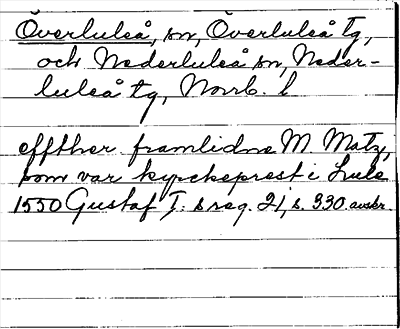 Överluleå, sn, Överluleå tg,
och Nederluleå sn, Neder-
luleå tg, Norrb. l
effther framlidne M. Matz,
som var kyrckeprest i Lule
1550 Gustaf I: s reg. 21, s. 330. avskr.